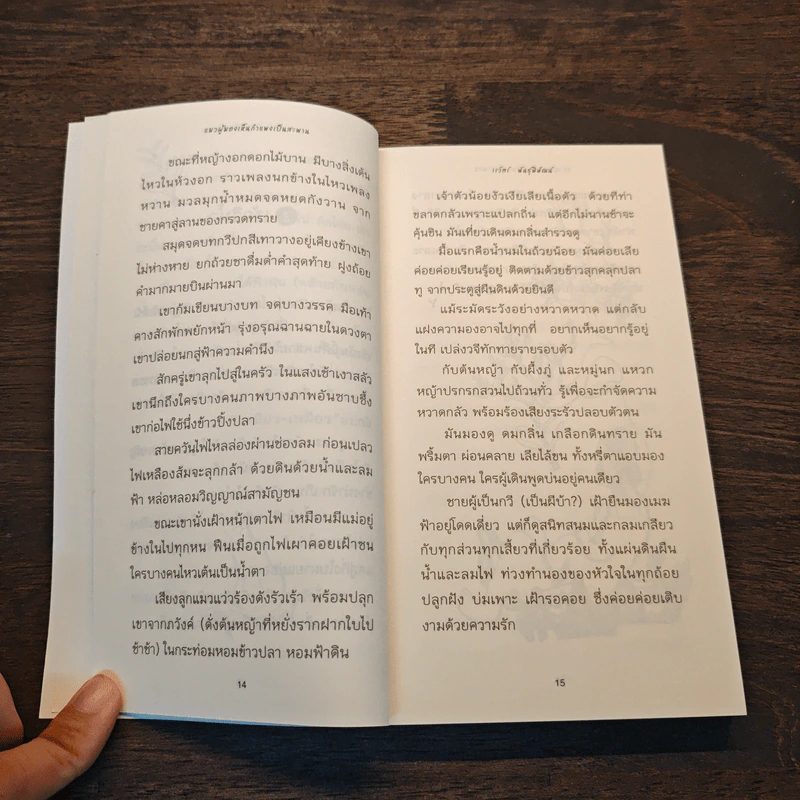 แมวผู้มองเห็นกำแพงเป็นสะพาน
ขณะที่หญ้างอกดอกไม้บาน มีบางสิ่งเต้น
ไหวในห้วงอก ราวเพลงนกข้างในไหวเพลง
หวาน มวลมุกน้ำหมดจดหยดกังวาน จาก
ชายคาสู่ลานของกรวดทราย
สมุดจดบทกวีปกสีเทาวางอยู่เคียงข้างเขา
ไม่ห่างหาย ยกถ้วยชาดื่มด่ำคำสุดท้าย ฝูงถ้อย
คำมากมายมาบินผ่านมา
เขาก้มเขียนบางบท จดบางวรรค มือเท้า
คางสักพักพยักหน้า รุ่งอรุณฉานฉายในดวงตา
เขาปล่อยนกสู่ฟ้าความคำนึง
สักครู่เขาลุกไปสู่ในครัว ในแสงเช้าเงาสลัว
เขานึกถึงใครบางคนภาพบางภาพอันซาบซึ้ง
เขาก่อไฟใช้นึ่งข้าวปิ้งปลา
สายควันไฟไหลล่องผ่านช่องลม ก่อนเปลว
ไฟเหลืองส้มจะลุกกล้า ด้วยดินด้วยน้ำและลม
ฟ้า หล่อหลอมวิญญาณ์สามัญชน
ขณะเขานั่งเฝ้าหน้าเตาไฟ เหมือนมีแม่อยู่
ข้างในไปทุกหน ฟืนเมื่อถูกไฟเผาคอยเฝ้าซน
ใครบางคนไหวเต้นเป็นน้ำตา
เสียงลูกแมวแว่วร้องดังรัวเร้า พร้อมปลุก
เขาจากภวังค์ (ดั่งต้นหญ้าที่หยั่งรากฝากใบไป
ช้าช้า) ในกระท่อมหอมข้าวปลา หอมฟ้าดิน
14
เจ้าตัวน้อยงัวเงียเลียเนื้อตัว ด้วยทีท่า
ขลาดกลัวเพราะแปลกถิ่น แต่อีกไม่นานช้าจะ
คุ้นชิน มันเที่ยวเดินดมกลิ่นสำรวจดู
มื้อแรกคือน้ำนมในถ้วยน้อย มันค่อยเลีย
ค่อยค่อยเรียนรู้อยู่ ติดตามด้วยข้าวสุกคลุกปลา
ทู จากประตูสู่ผืนดินด้วยยินดี
แม้ระมัดระวังอย่างหวาดหวาด แต่กลับ
แฝงความมองอาจไปทุกที่ อยากเห็นอยากรู้อยู่
ในที เปล่งวจีทักทายรายรอบตัว
กับต้นหญ้า กับผึ้งภู่ และหมู่นก แหวก
หญ้าปรกรกสวนไปถ้วนทั่ว รู้เพื่อจะกำจัดความ
หวาดกลัว พร้อมร้องเสียงระรัวปลอบตัวตน
มันมองดู ดมกลิ่น เกลือกดินทราย มัน
พริ้มตา ผ่อนคลาย เลียไล้ขน ทั้งหรี่ตาแอบมอง
ใครบางคน ใครผู้เดินพูดบ่นอยู่คนเดียว
ชายผู้เป็นกวี (เป็นผีบ้า?) เฝ้ายืนมองเมฆ
ฟ้าอยู่โดดเดี่ยว แต่ก็ดูสนิทสนมและกลมเกลียว
กับทุกส่วนทุกเสี้ยวที่เกี่ยวร้อย ทั้งแผ่นดินผืน
น้ำและลมไฟ ท่วงทำนองของหัวใจในทุกถ้อย
ปลูกฝัง บ่มเพาะ เฝ้ารอคอย ซึ่งค่อยค่อยเติบ
งามด้วยความรัก
15